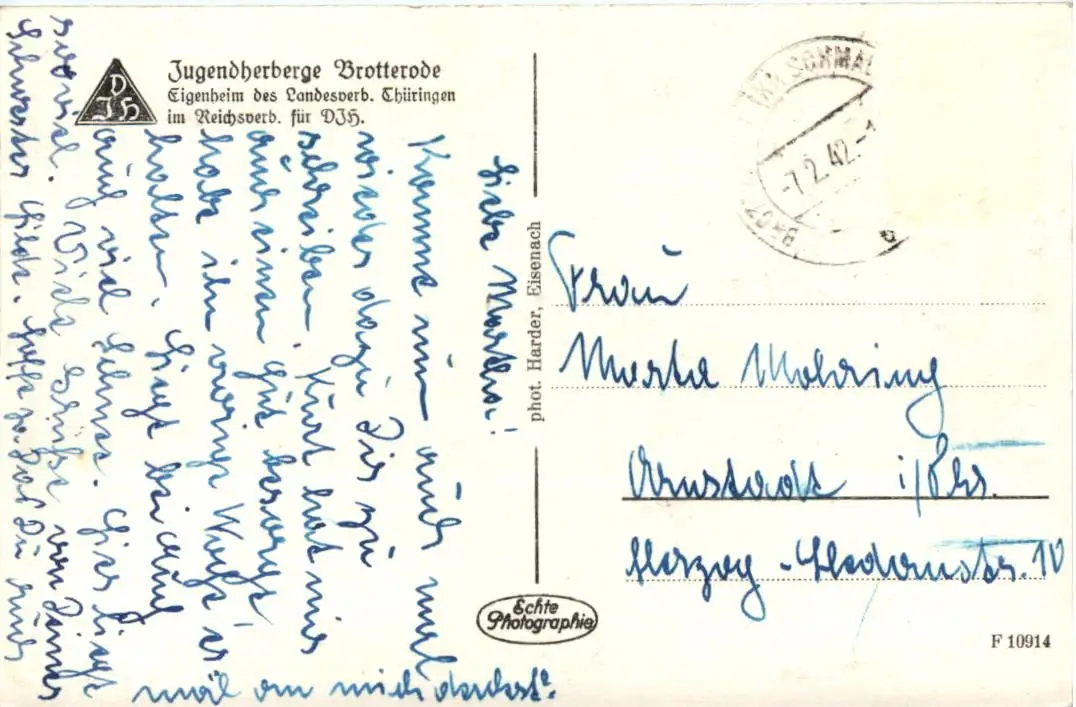 Jugendherberge Brotterode
Eigenheim des Landesverb. Thüringen
im Reichsverb. für DJH.
DJH
Liebe Martha!
Komme nun auch mal
wieder dazu Dir zu
schreiben. Kurt hat mir
auch einen gut besorgt
habe ihn vorige Woche er
halten. Liegt bei Euch
auch viel Schnee. Hier liegt
soviel. Viele Grüße von Deiner
Schwester Hilde. Hoffe ja das Du auch
mal an mich denkst.
phot. Harder, Eisenach
Echte
Photographie
SCHMAL
-7.2.42.-
b
Frau
Marta Mohring
Arnstadt i/Thr.
Herzog-Hedanstr. 10
F 10914